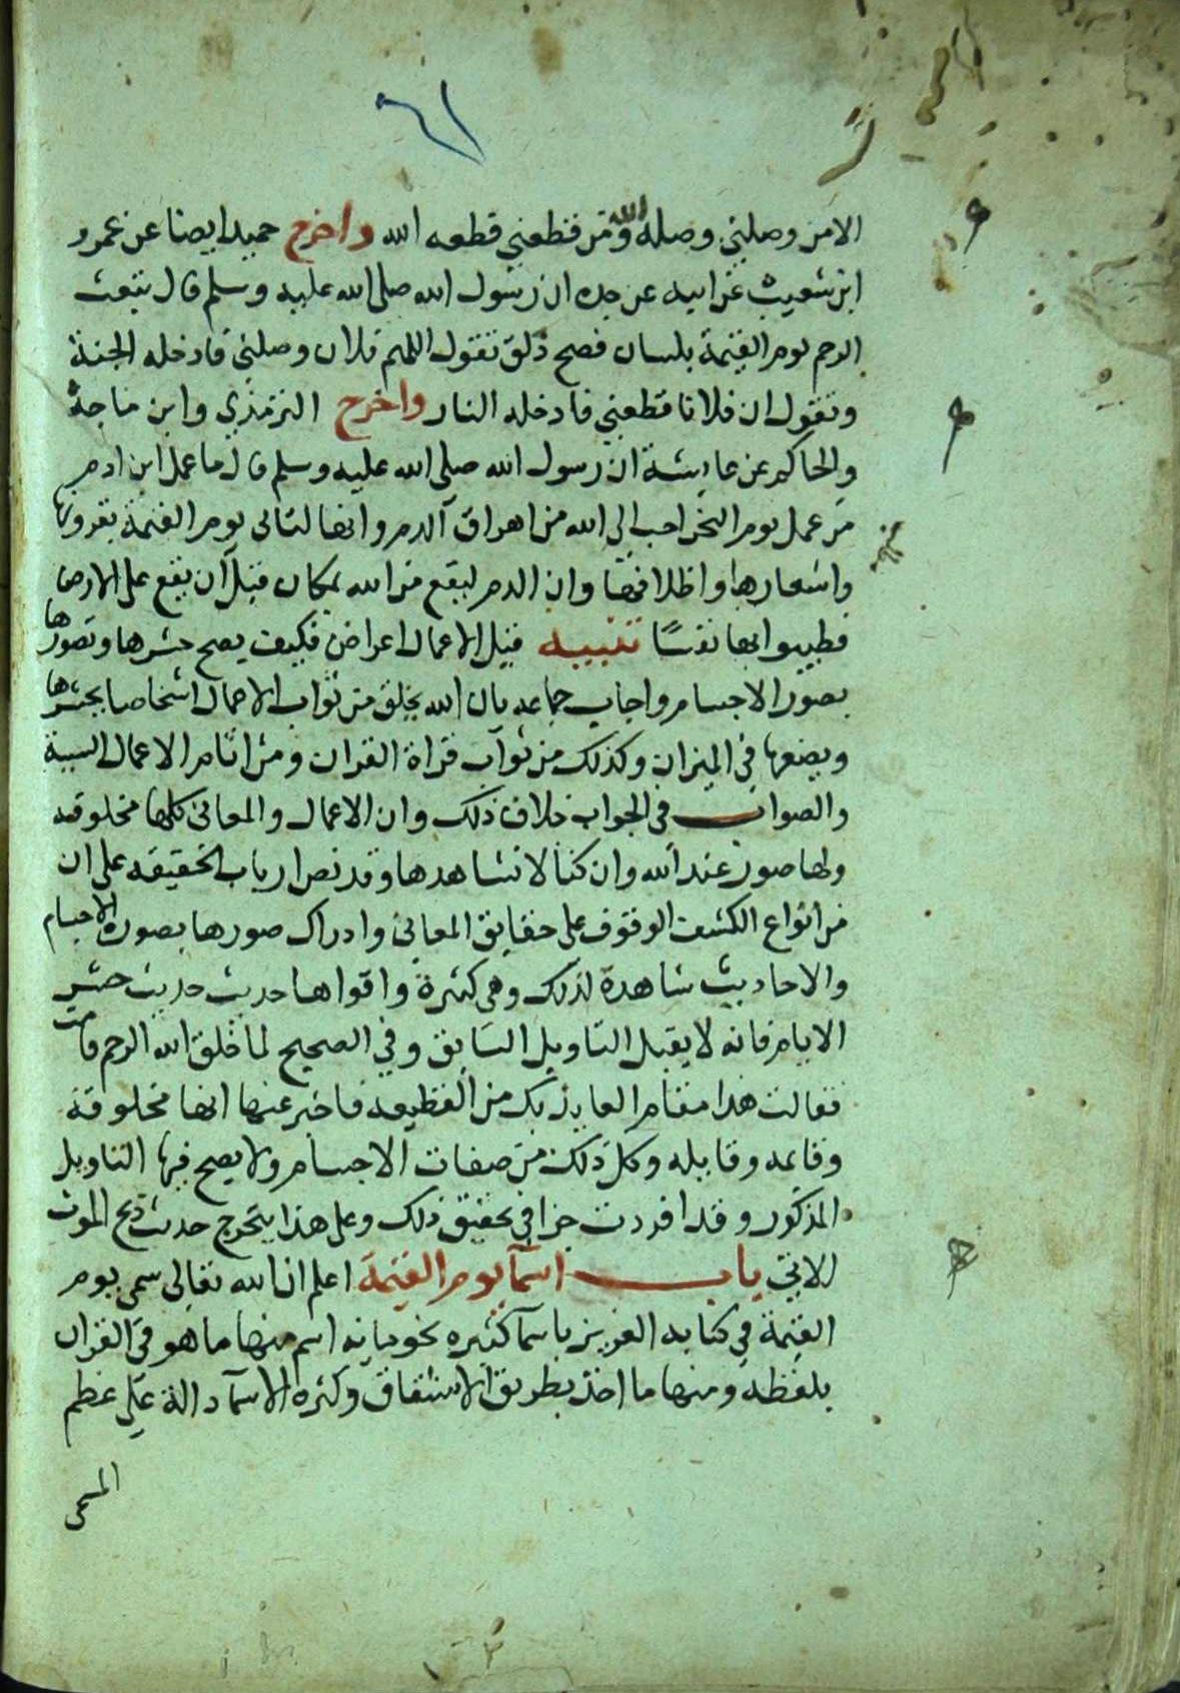 ٦١
الا من وصلني وصله الله ومن قطعني قطعه الله واخرج حميد ايضا عن عمرو
ابن شعيب عن ابيه عن جده ان رسول الله صلى الله عليه وسلم قال تبعث
الرحم يوم القيمة بلسان فصح ذلق تقول اللهم فلان وصلني فادخله الجنة
وتقول ان فلانا قطعني فادخله النار واخرج الترمذي وابن ماجة
والحاكم عن عايشة ان رسول الله صلى الله عليه وسلم قال ما عمل ابن ادم
من عمل يوم النحر احب الى الله من اهراق الدم وانها لتاتى يوم القيمة بقرونها
واشعارها واظلافها وان الدم ليقع من الله بمكان قبل ان يقع على الارض
فطيبوا بها نفسًا تنبيه قيل الاعمال اعراض فكيف يصح حشرها وتصورها
بصور الاجسام واجاب جماعه بان الله يخلق من ثواب الاعمال اشخاصا يحشرها
ويضعها في الميزان وكذلك من ثواب قراة القران ومن اثام الاعمال السيئة
والصواب في الجواب خلاف ذلك وان الاعمال والمعاني كلها مخلوقه
ولها صور عند الله وان كنا لا نشاهدها وقد نص ارباب الحقيقه على ان
من انواع الكشف الوقوف على حقايق المعاني وادراك صورها بصورة الاجسام
والاحاديث شاهدة لذلك وهي كثيرة واقواها حديث حديث حشر
الايام فانه لا يقبل التاويل السابق وفي الصحيح لما خلق الله الرحم قامت
فقالت هذا مقام العايذ بك من القطيعه فاخبر عنها انها مخلوقة
وقايمه وقايله وكل ذلك من صفات الاجسام ولا يصح فيها التاويل
المذكور وقد افردت جزا في تحقيق ذلك وعلى هذا يتخرج حديث ذبح الموت
الاتي باب اسمآ يوم القيمة اعلم ان الله تعالى سمى يوم
القيمة في كتابه العزيز باسمآ كثيره نحو مايه اسم منها ما هو في القران
بلفظه ومنها ما اخذ بطريق الاشتقاق وكثره الاسمآ دالة على عظم
المسمى